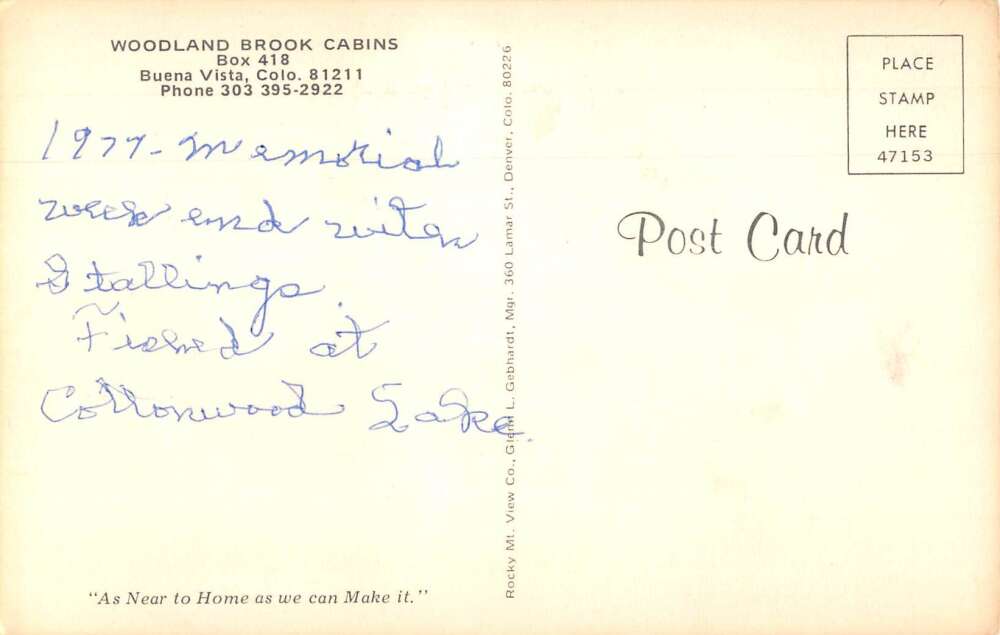 WOODLAND BROOK CABINS
Box 418
Buena Vista, Colo. 81211
Phone 303 395-2922
1977- Memorial
week end with
Stallings.
Fished at
Cottonwood Lake.
"As Near to Home as we can Make it."
Rocky Mt. View Co., Glenn L. Gebhardt, Mgr. 360 Lamar St., Denver, Colo. 80226
PLACE
STAMP
HERE
47153
Post Card